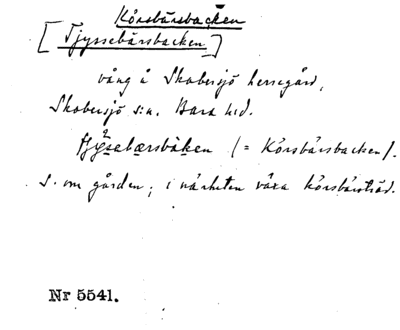 Körsbärsbacken
[Tjyssebärsbacken]
vång å Skabersjö herregård,
Skabersjö s:n. Bara hd.
(= Körsbärsbacken).
S. om gården; i närheten växa körsbärsträd.
Nr 5541.